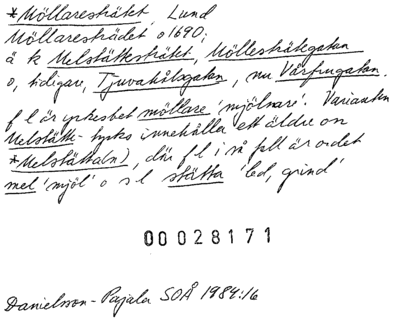 *Möllaresträtet, Lund
Möllarestrådet o 1690;
ä k Melstättesträtet, Möllesträtesgatan
o, tidigare, Tjuvahålsgatan, nu Vårfrugatan.
f l är yrkesbet möllare 'mjölnare'. Varianten
Melstätte- tycks innehålla ett äldre on
*Melstätta(n), där f l i så fall är ordet
mel 'mjöl' o s l stätta 'led, grind'
00028171
Danielsson-Pajala SOÅ 1984:16